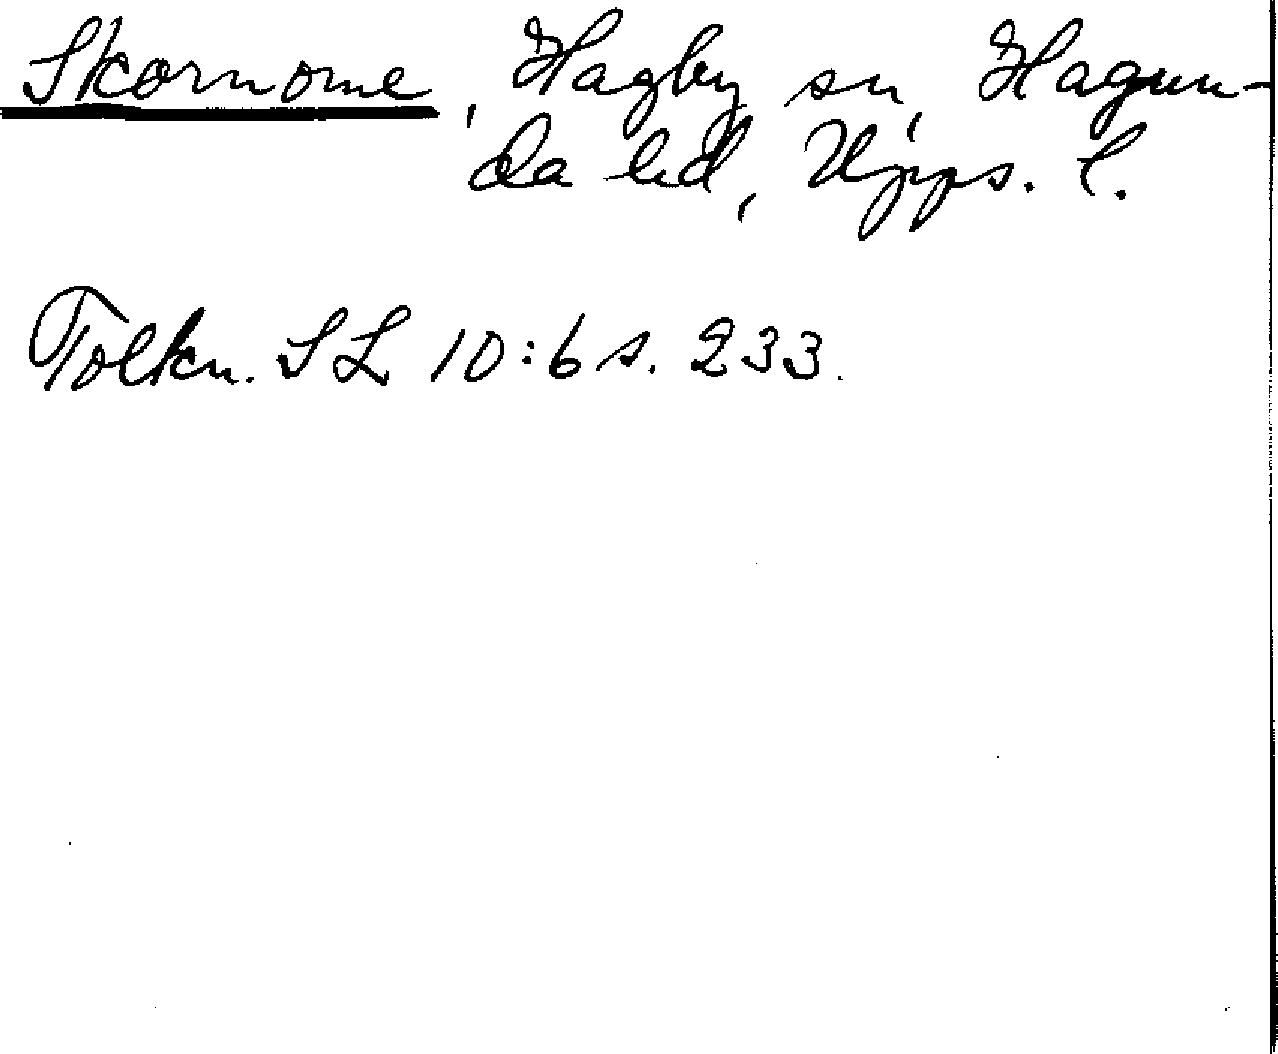 Skornome, Hagby sn, Hagun-
da hd, Upps. l.
Tolkn. SL 10:6 s. 233.